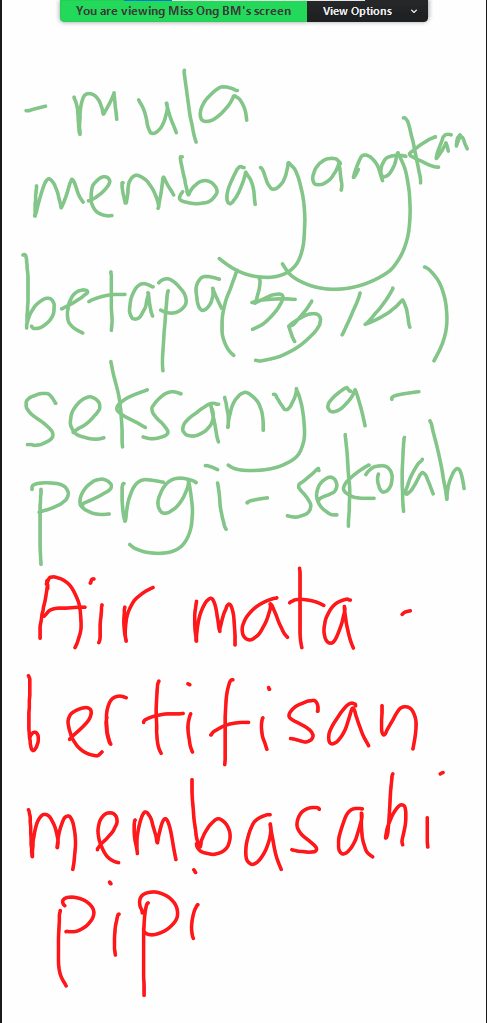 You are viewing Miss Ong BM's screen View Options
- mula
membayangkan
betapa
seksanya -
pergi - sekolah
Air mata -
bertifisan
membasahi
pipi